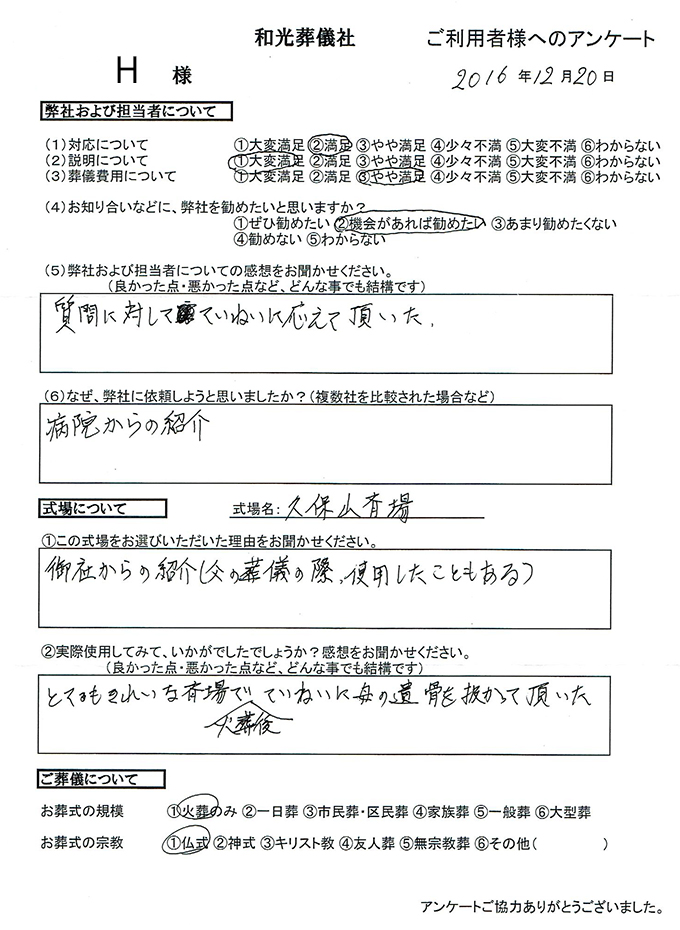 和光葬儀社　ご利用者様へのアンケート
H 様　2016年12月20日
弊社および担当者について
(1)対応について　①大変満足 ②満足 ③やや満足 ④少々不満 ⑤大変不満 ⑥わからない
(2)説明について　①大変満足 ②満足 ③やや満足 ④少々不満 ⑤大変不満 ⑥わからない
(3)葬儀費用について　①大変満足 ②満足 ③やや満足 ④少々不満 ⑤大変不満 ⑥わからない
(4)お知り合いなどに、弊社を勧めたいと思いますか？
①ぜひ勧めたい ②機会があれば勧めたい ③あまり勧めたくない
④勧めない ⑤わからない
(5)弊社および担当者についての感想をお聞かせください。
(良かった点・悪かった点など、どんな事でも結構です)
質問に対してていねいに応えて頂いた。
(6)なぜ、弊社に依頼しようと思いましたか？(複数社を比較された場合など)
病院からの紹介
式場について　式場名：久保山斉場
①この式場をお選びいただいた理由をお聞かせください。
御社からの紹介(父の葬儀の際、使用したこともある)
②実際使用してみて、いかがでしたでしょうか？感想をお聞かせください。
(良かった点・悪かった点など、どんな事でも結構です)
とてもきれいな斉場で ていねいに母の遺骨を扱かって頂いた
火葬後
ご葬儀について
お葬式の規模　①火葬のみ ②一日葬 ③市民葬・区民葬 ④家族葬 ⑤一般葬 ⑥大型葬
お葬式の宗教　①仏式 ②神式 ③キリスト教 ④友人葬 ⑤無宗教葬 ⑥その他(　　　)
アンケートご協力ありがとうございました。